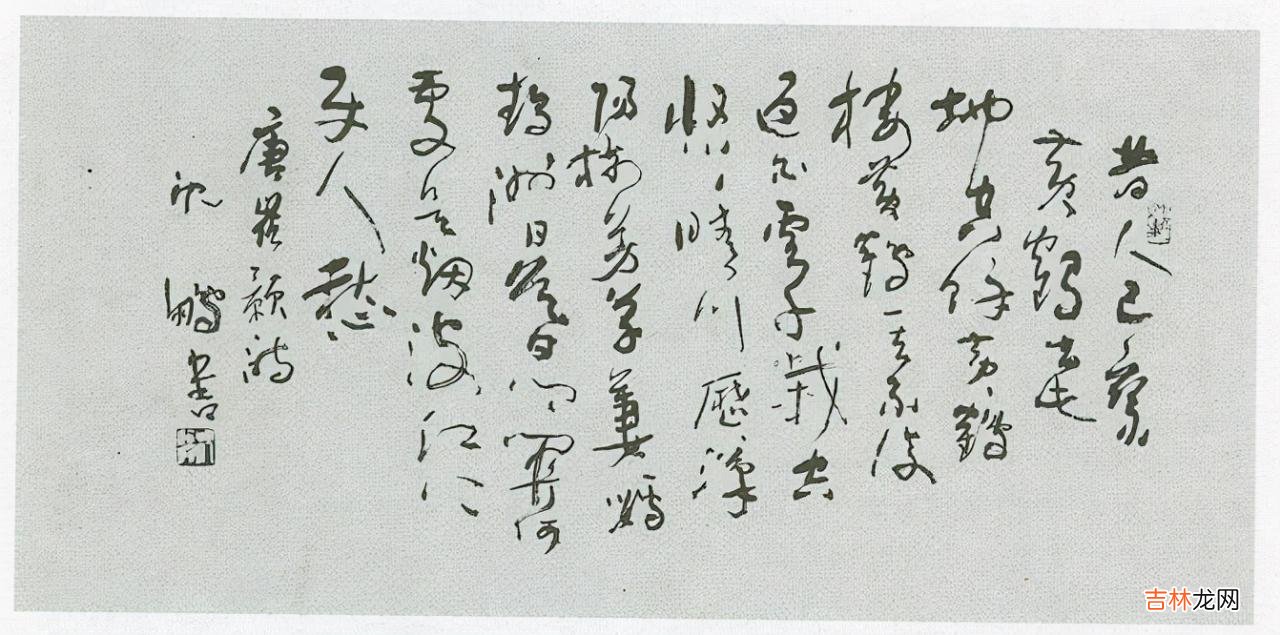 昔人已乘
黄鶴去此
地空餘黄鶴
樓黄鶴一去不復
返白雲千載空
悠悠晴川歷歷漢
陽樹芳草萋萋鸚
鵡洲日暮鄉關何
處是烟波江上
使人愁
唐崔颢詩
沈鵬書
吉林龙网